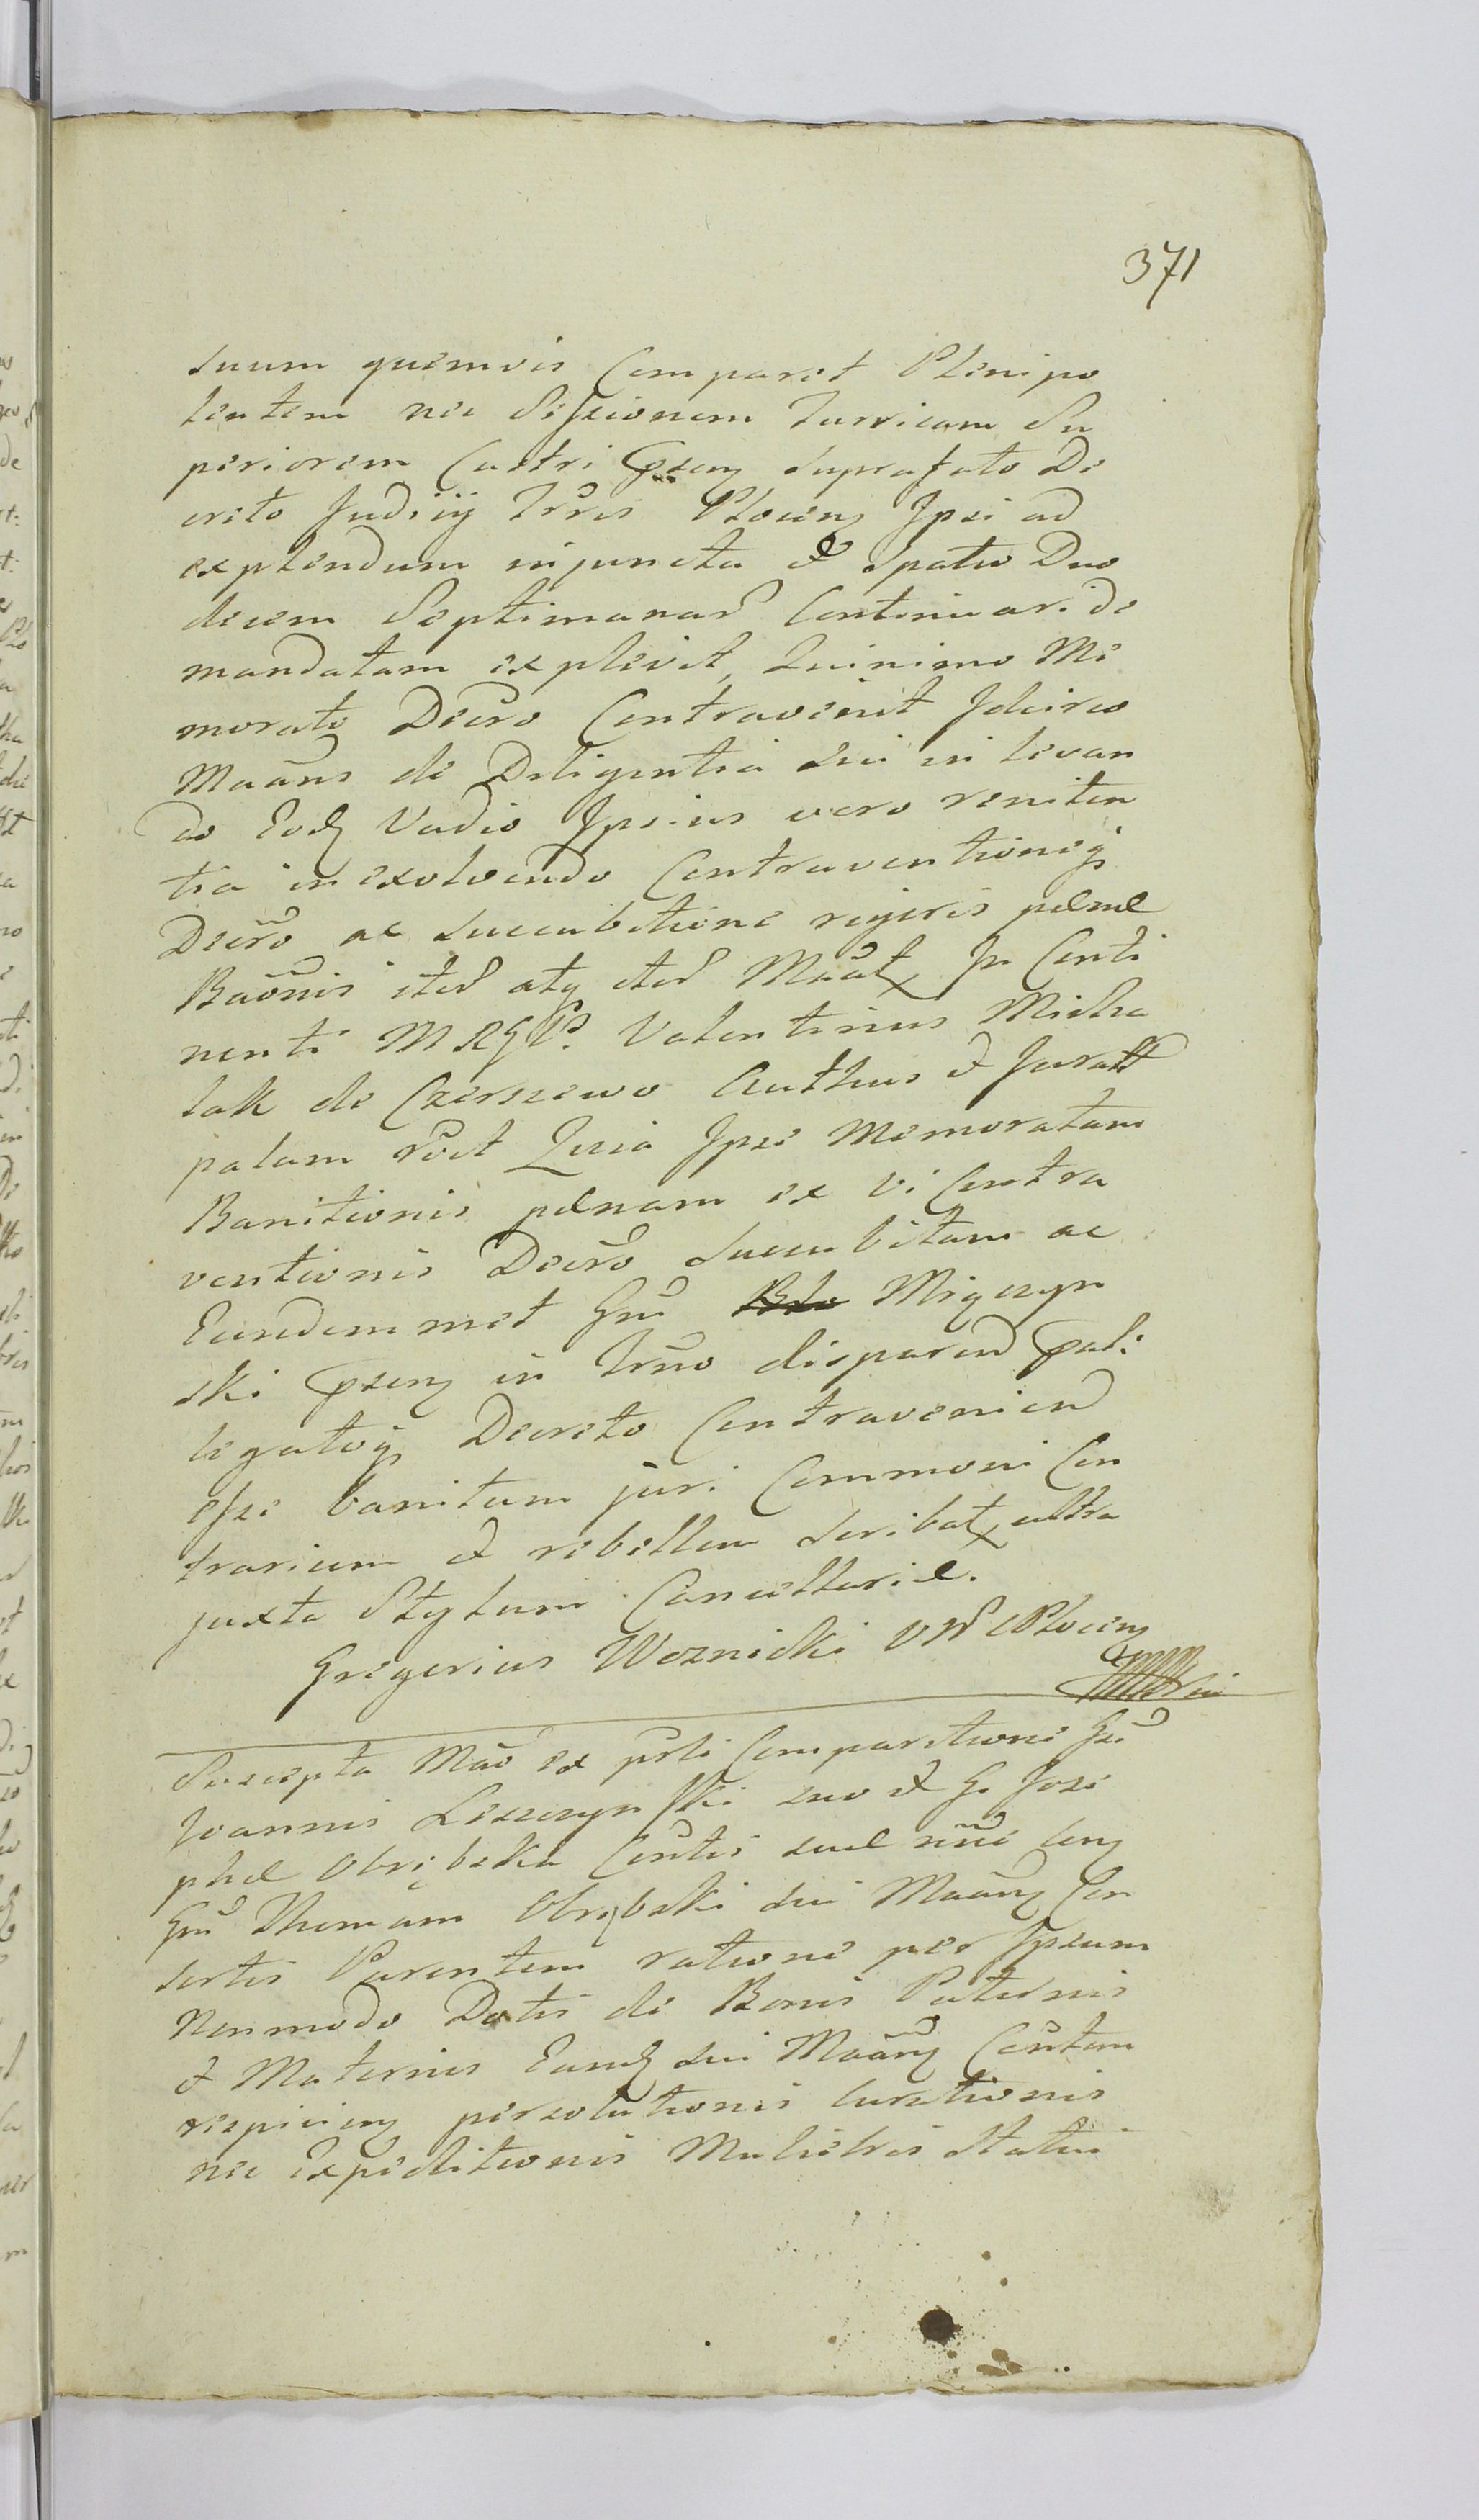 371
suum quemvis Comparet Plenipo
tentem nec Sessionem Turricam Su
periorem Castri suprafato De
creto Judicij Trris Plocen Ipsi ad
explendum injuncta & Spatio Duo
decem Septimanar Continuari de
mandatam explevit, Quinimo Me
morato Decro Contravenit Idcirco
Maans de Diligentia sui in levan
do Eodq Vadio Ipsius vero reniten
tia in exolvendo Contraventioneq
Decro ac succubitione regeris penae
Baonis iter atq iter Maat In Conti
nenti M R G P. Valentinus Micha
lak de Czerszewo Authus & Juratt
palam rcit Quia Ipse Memoratam
Banitionis penam ex vi Contra
ventionis Decro succubitam ac
Eundemmet Gnu Migczyn
ski in Trno disparend
legatoq Decreto Contravenien
esse banitum juri Communi Con
trarium & rebellem scribat, ultra
juxta Stylum Cancellariae.
Gregorius Woznicki Plocen
Suscepta Mao ex prsti Comparitione Gsi
Joannis Leszczynski suo & G. Jose
phae Obrębska Contis suae nne
Gnu Thomam Obrębski sui Maans Con
sortis Parentem ratione per Ipsum
Nonmodo Dotis de Bonis Paternis
& Maternis Eandq sui Maans Contem
respicien persolutionis Curationis
nec Expeditionis Muliebris Statui